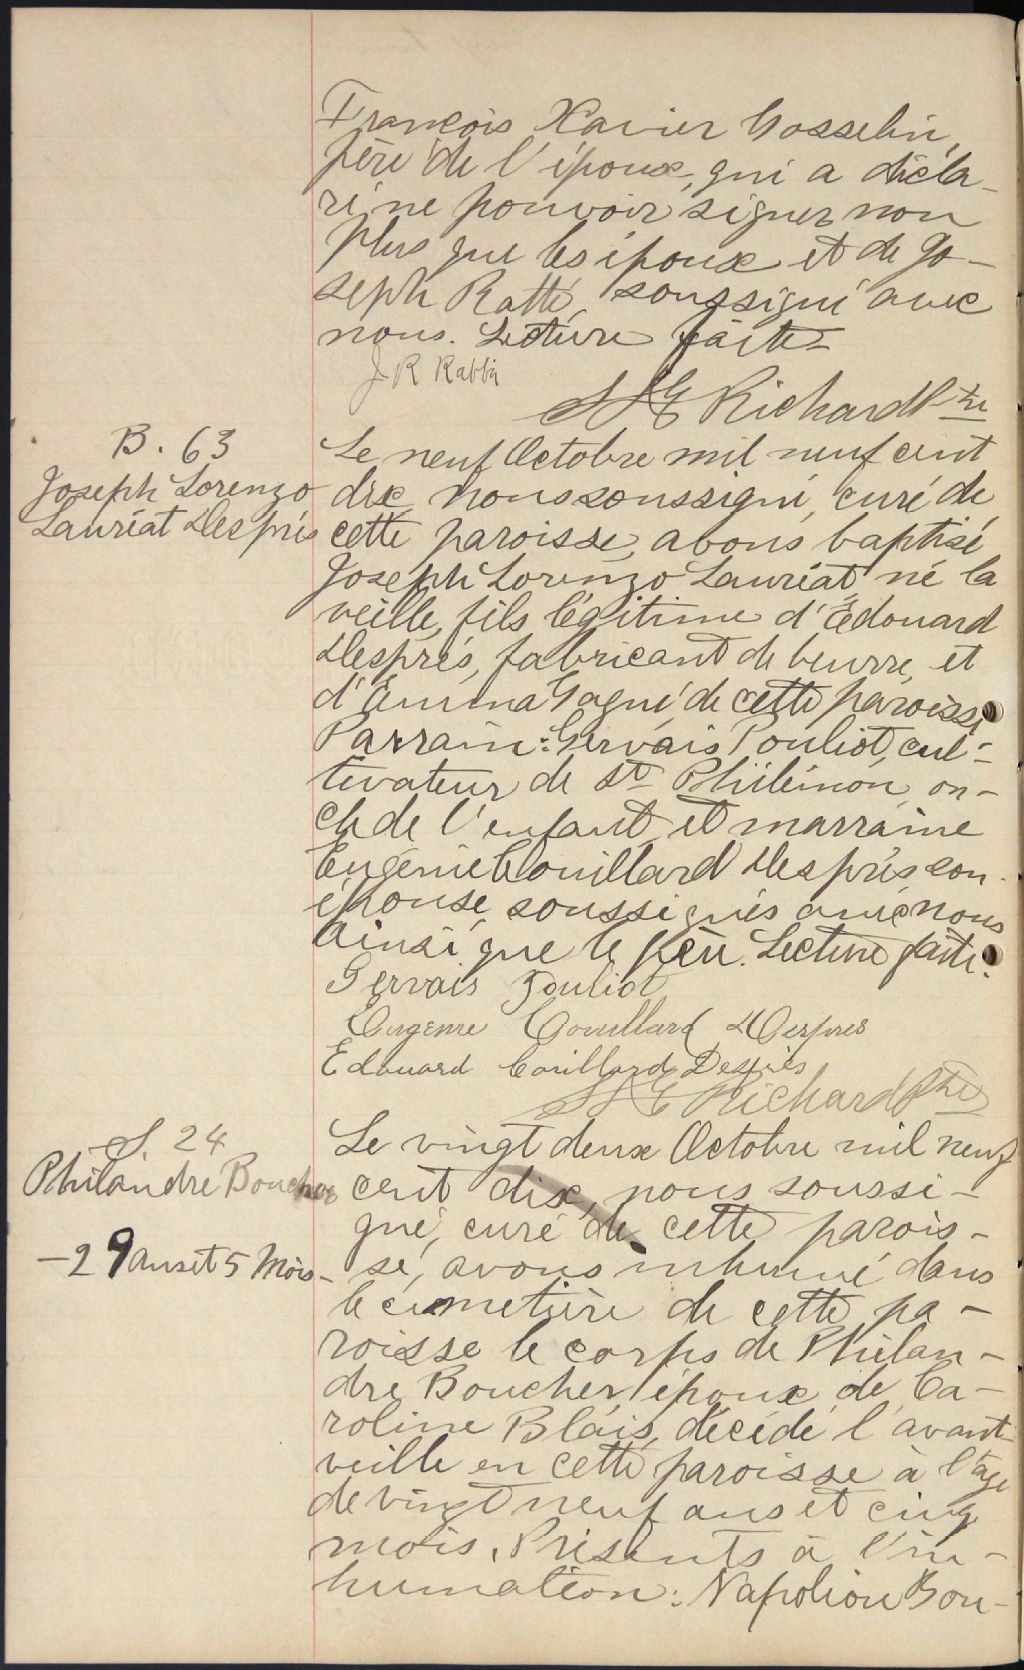 François Xavier Gosselin,
père de l'époux, qui a décla-
ré ne pouvoir signer non
plus que les époux et de Jo-
seph Ratté, soussigné avec
nous. Lecture faite
J R
Richard Ptre
B. 63
Joseph Lorenzo
Lauréat Desprès
Le neuf Octobre mil neuf cent
dix, nous soussigné, curé de
cette paroisse, avons baptisé
Joseph Lorenzo Lauréat, né la
veille, fils légitime d'Édouard
Desprès, fabricant de beurre, et
d'Emma Gagné de cette paroisse
Parrain: Gervais Pouliot, cul-
tivateur de St Philémon, on-
cle de l'enfant, et marraine
Eugénie Couillard Desprès son
épouse soussignés avec nous
ainsi que le père. Lecture faite.
Gervais Pouliot
Eugenie Couillard Despres
Edouard Couillard Després
Richard Ptre
S. 24
Philandre Boucher
-29 ans et 5 Mois-
Le vingt deux Octobre mil neuf
cent dix, nous soussi-
gné, curé de cette parois-
se, avons inhumé dans
le cimetière de cette pa-
roisse le corps de Philan-
dre Boucher, époux de Ca-
roline Blais, décédé l'avant
veille en cette paroisse à l'age
de vingt neuf ans et cinq
mois. Présents à l'in-
humation: Napoléon Bou-